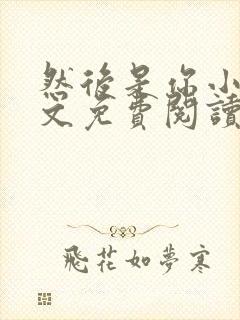 然後是你小
文免費閱讀
飛花如夢寒